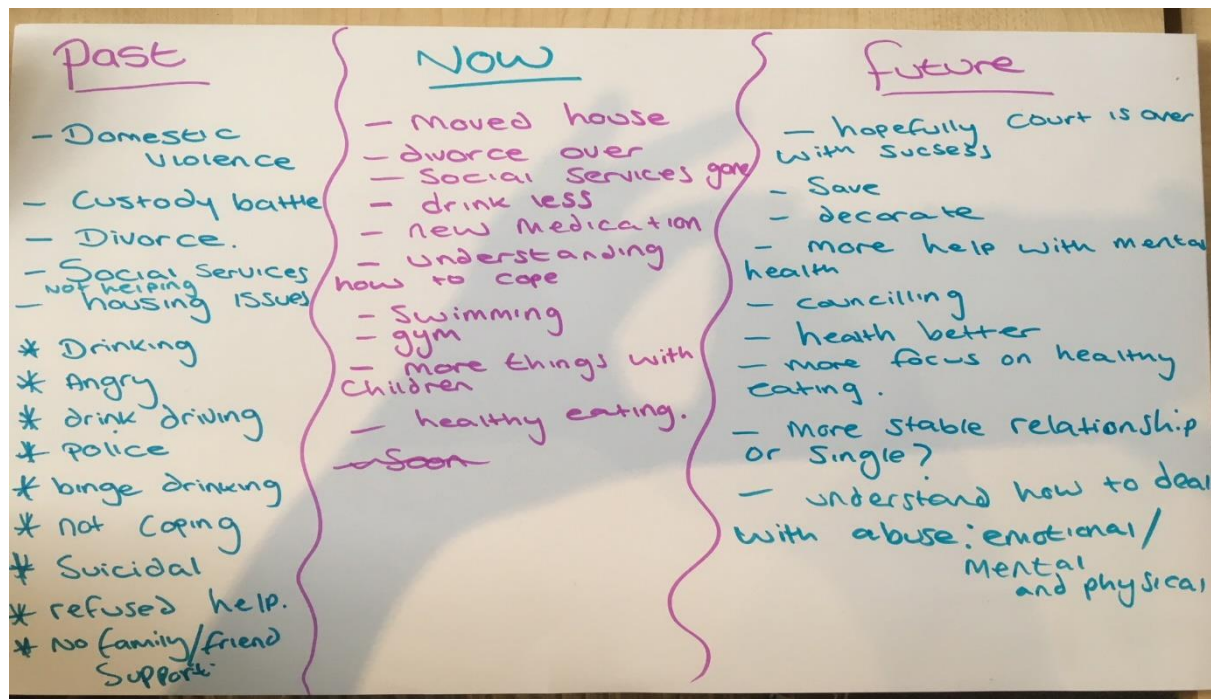 Past
- Domestic
violence
- Custody battle
- Divorce.
- Social Services
not helping
- housing issues
* Drinking
* Angry
* drink driving
* police
* binge drinking
* not coping
* Suicidal
* refused help.
* No family/friend
Support.
Now
- moved house
- divorce over
- Social Services gone
- drink less
- new medication
- understanding
how to cope
- Swimming
- gym
- more things with
Children
- healthy eating.
- Soon
future
- hopefully court is over
with sucsess
- Save
- decorate
- more help with mental
health
- councilling
- health better
- more focus on healthy
eating.
- More stable relationship
or Single?
- understand how to deal
with abuse: emotional/
Mental
and physical